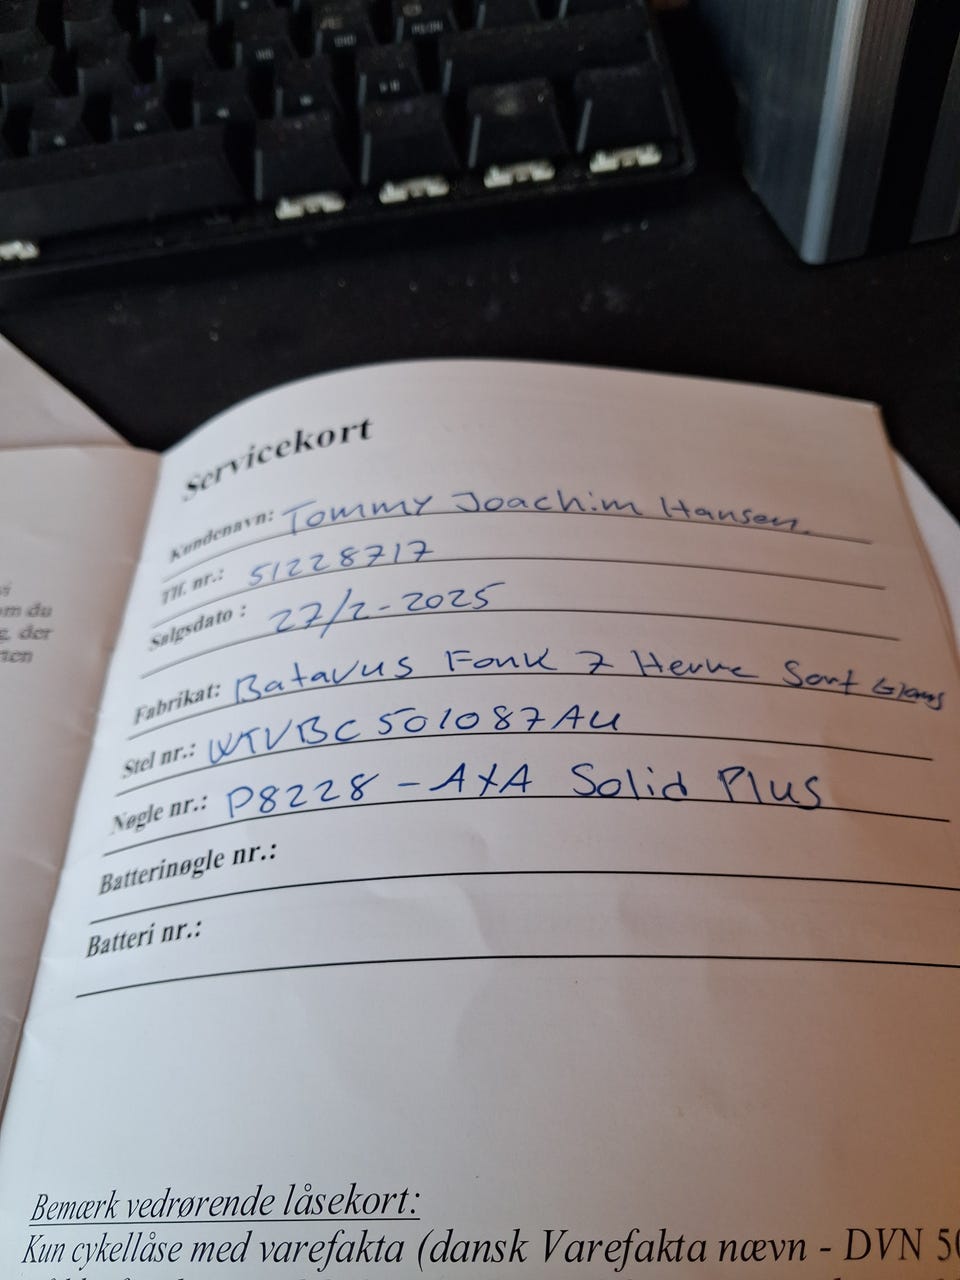 Servicekort
Kundenavn: Tommy Joachim Hansen
Tlf. nr.: 51228717
Salgsdato : 27/2-2025
Fabrikat: Batavus Fonk 7 Herre Sort Glans
Stel nr.: WTVBC501087AU
Nøgle nr.: P8228 - AXA Solid Plus
Batterinøgle nr.:
Batteri nr.:
om du
der
Bemærk vedrørende låsekort:
Kun cykellåse med varefakta (dansk Varefakta nævn - DVN 50